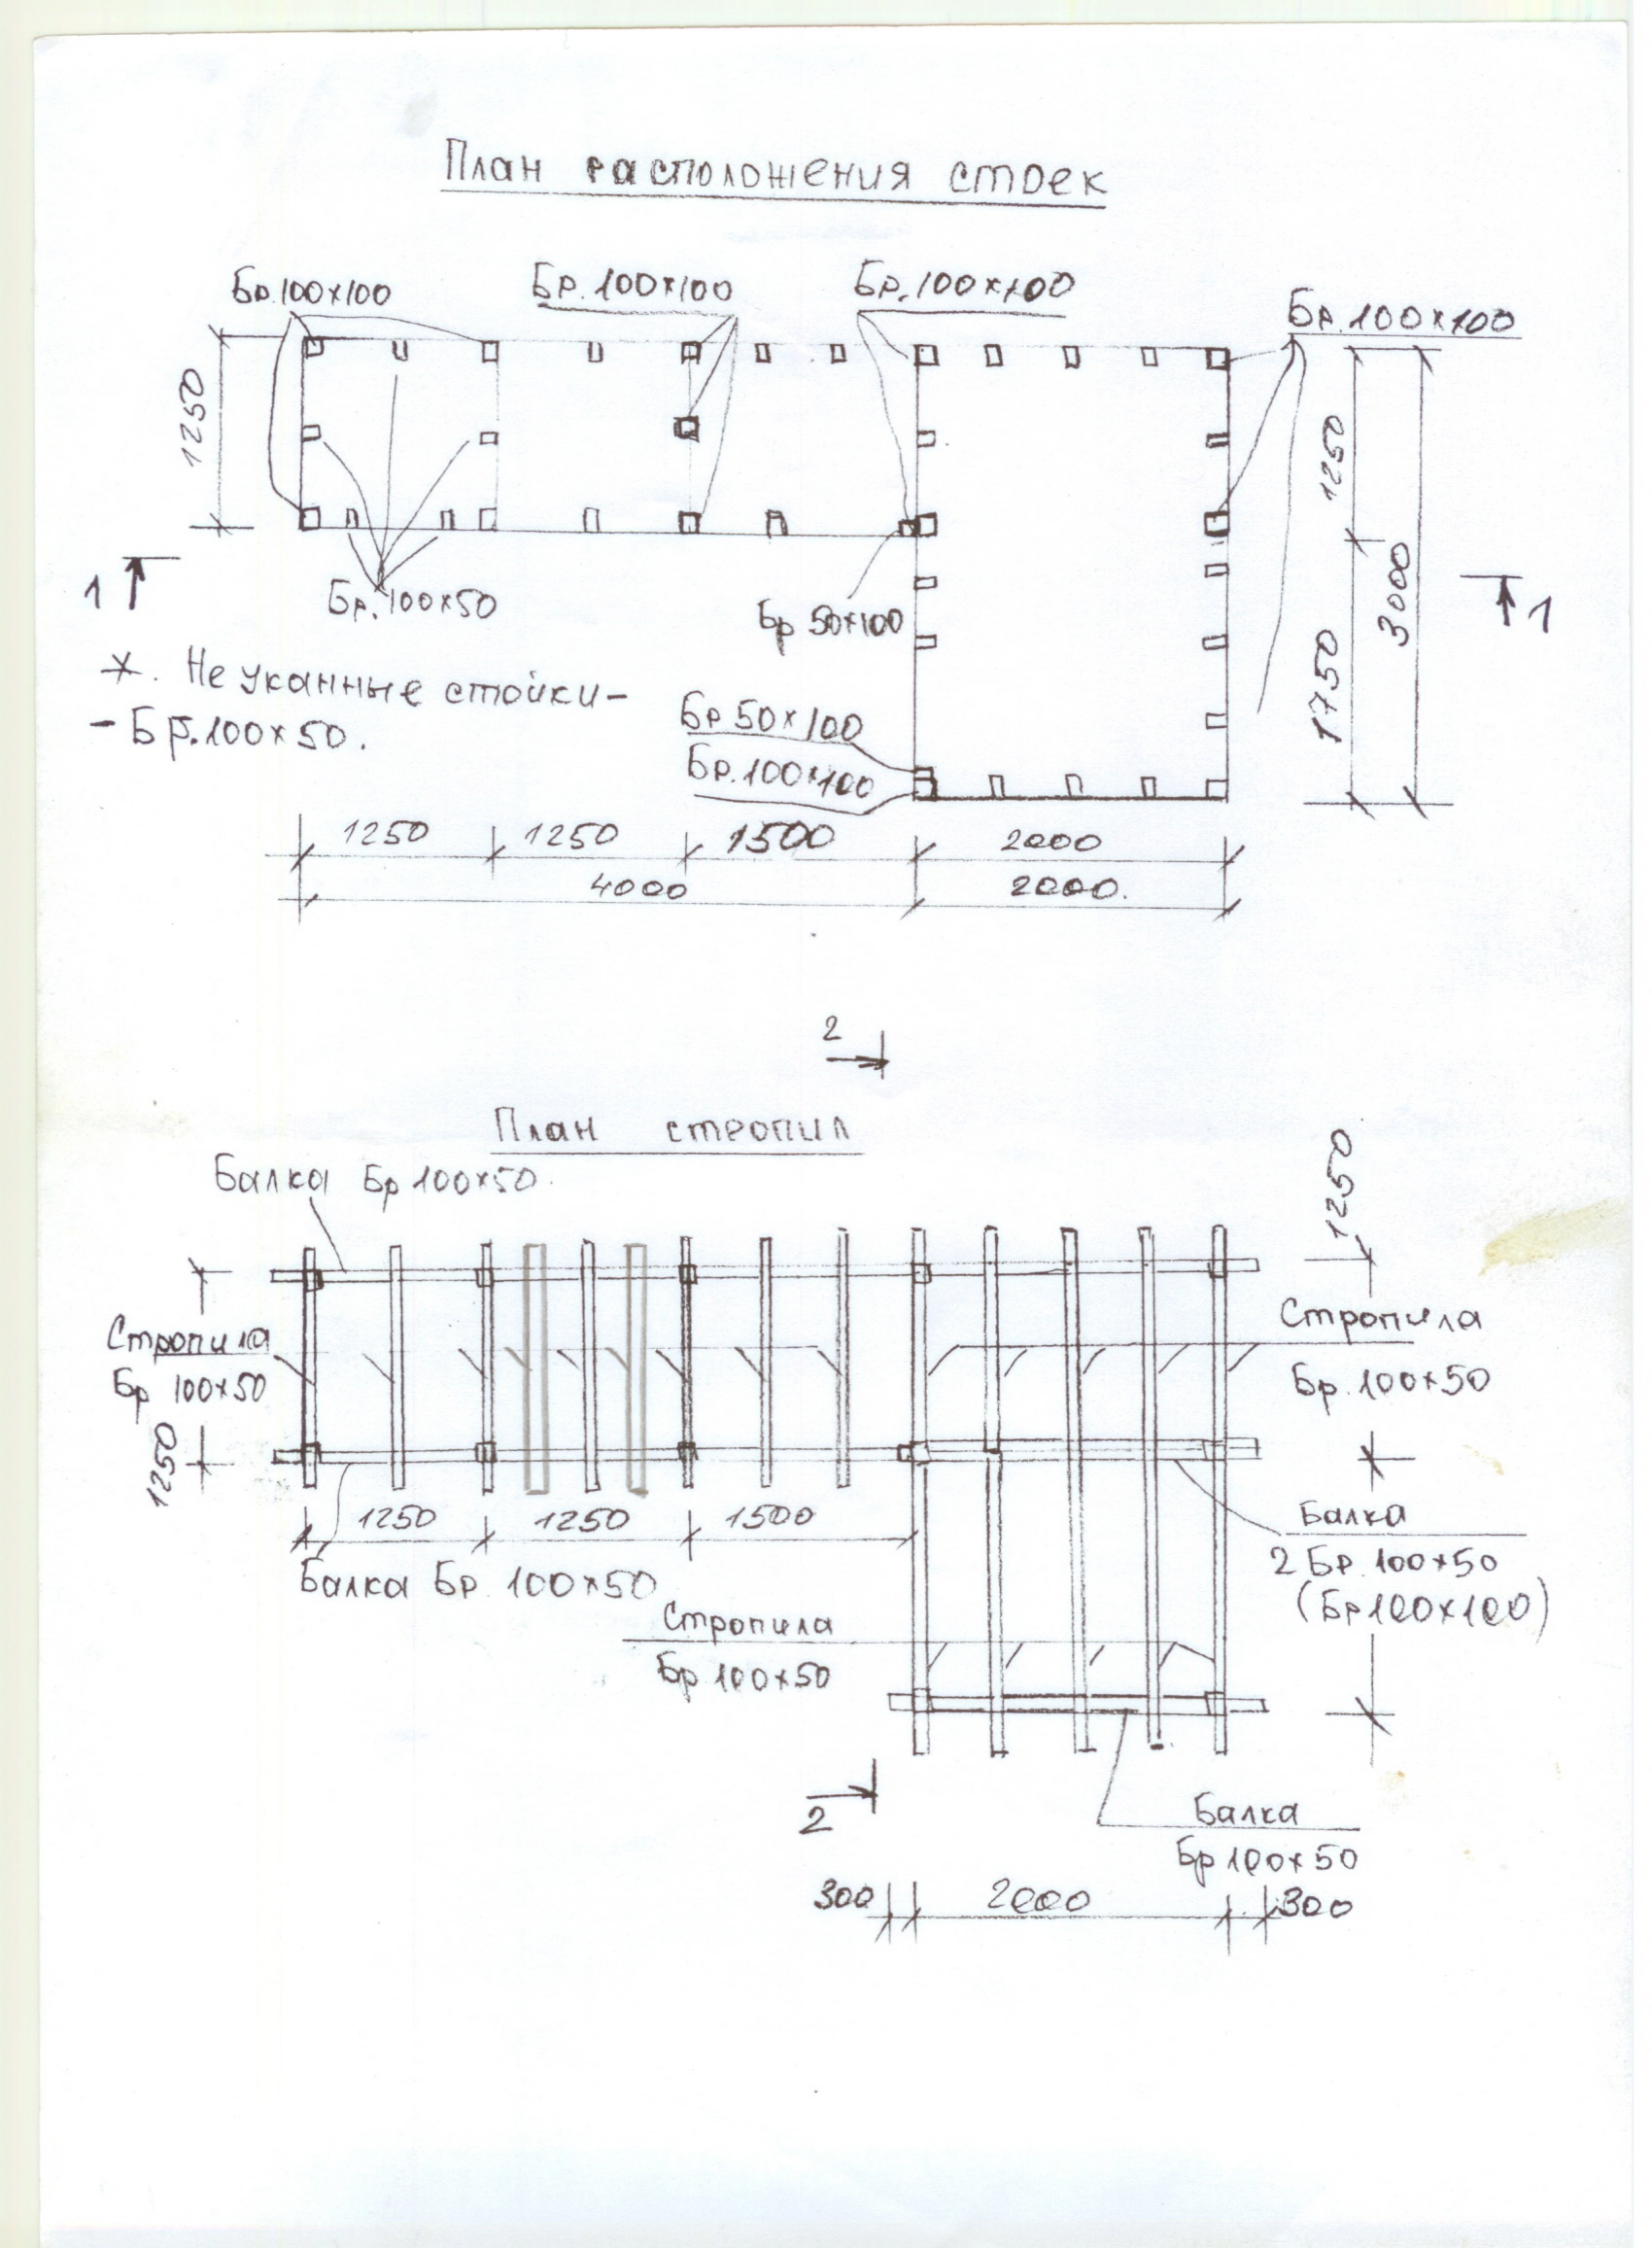 План расположения стоек
Бр.100×100
Бр.100×100
Бр.100×100
Бр.100×100
1250
1250
3000
1750
1
1
Бр.100×50
Бр 50×100
*. Не уканные стойки-
- Бр.100×50.
Бр 50×100
Бр.100×100
1250
1250
1500
2000
4000
2000.
2
План стропил
Балка Бр 100×50.
1250
Стропила
Бр 100×50
Стропила
Бр.100×50
1250
1250
1250
1500
Балка Бр 100×50
Балка
2 Бр.100×50
(Бр100×100)
Стропила
Бр 100×50
2
Балка
Бр 100×50
300
2000
300